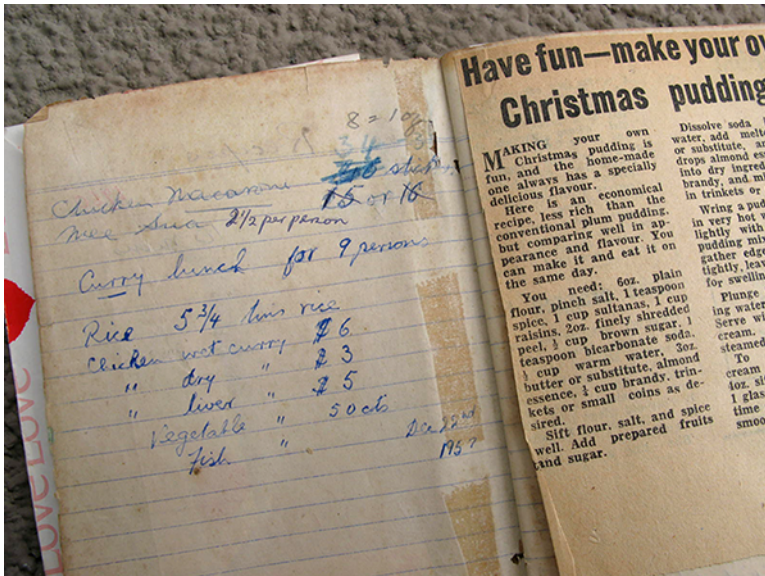 8 = 10
34
Chicken Macaroni
15 or 16
Mee Sua 2½ per person
Curry lunch for 9 persons
Rice 5 3/4 tins rice
Chicken wet curry $6
" dry " $3
" liver " $5
Vegetable " 50cts
Fish "
Dec 22nd
195?
Have fun—make your ow
Christmas pudding
MAKING your own
Christmas pudding is
fun, and the home-made
one always has a specially
delicious flavour.
Here is an economical
recipe, less rich than the
conventional plum pudding,
but comparing well in ap-
pearance and flavour. You
can make it and eat it on
the same day.
You need: 6oz. plain
flour, pinch salt, 1 teaspoon
spice, 1 cup sultanas, 1 cup
raisins, 2oz. finely shredded
peel, ½ cup brown sugar, 1
teaspoon bicarbonate soda,
½ cup warm water, 3oz.
butter or substitute, almond
essence, ¼ cup brandy, trin-
kets or small coins as de-
sired.
Sift flour, salt, and spice
well. Add prepared fruits
and sugar.
Dissolve soda
water, add melt
or substitute, a
drops almond es
into dry ingred
brandy, and mi
in trinkets or
Wring a pud
in very hot w
lightly with
pudding mix
gather edge
tightly, leav
for swellin
Plunge
ing water
Serve wi
cream.
steamed
To
cream
4oz. si
1 glas
time
smoo
LOVE LOVE